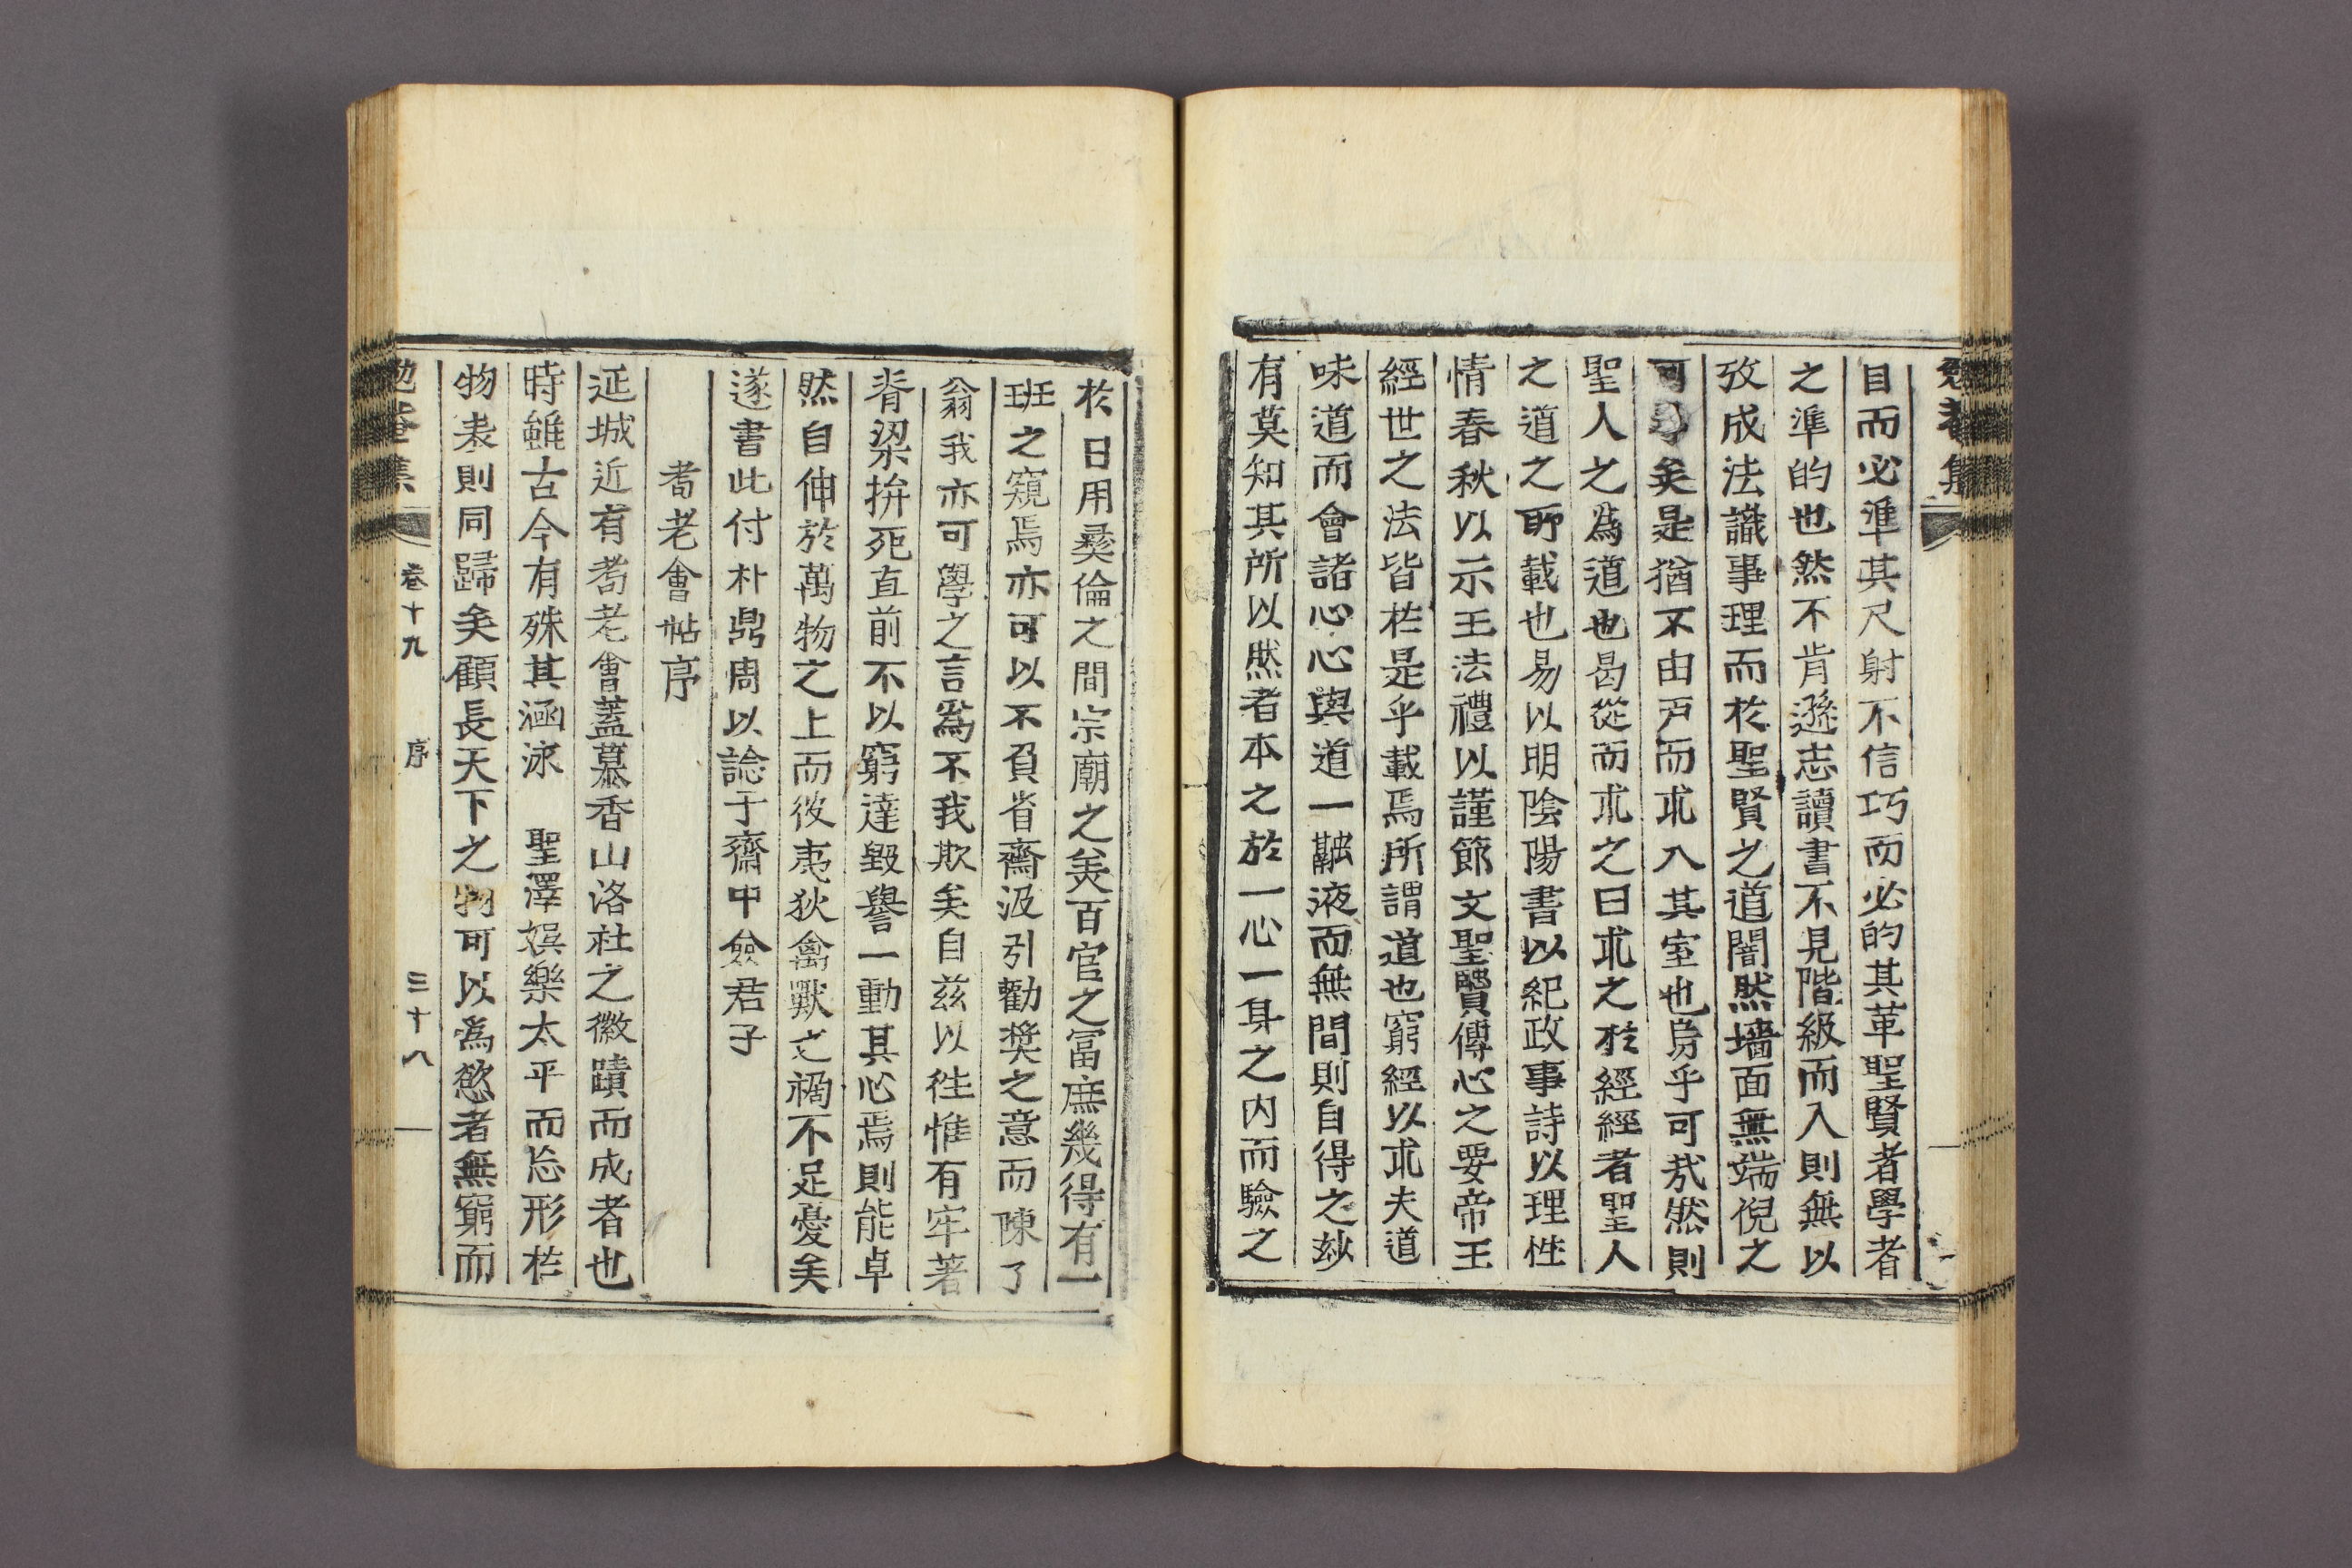 勉菴集
目而必準其尺射不信巧而必的其革聖賢者學者
之準的也然不肯遜志讀書不見階級而入則無以
攷成法識事理而於聖賢之道闇然墻面無端倪之
可尋矣是猶不由戶而求入其室也烏乎可哉然則
聖人之爲道也曷從而求之曰求之於經經者聖人
之道之所載也易以明陰陽書以紀政事詩以理性
情春秋以示王法禮以謹節文聖贒傳心之要帝王
經世之法皆在是乎載焉所謂道也窮經以求夫道
味道而會諸心心與道一融液而無間則自得之玅
有莫知其所以然者本之於一心一身之内而驗之
於日用彜倫之間宗廟之美百官之富庶幾得有一
班之窺焉亦可以不負省齋汲引勸奬之意而陳了
翁我亦可學之言爲不我欺矣自兹以徃惟有牢著
脊梁拚死直前不以窮達毀譽一動其心焉則能卓
然自伸於萬物之上而彼夷狄禽獸之禍不足憂矣
遂書此付朴鼎周以諗于齋中僉君子
耆老會帖序
延城近有耆老會蓋慕香山洛社之徽蹟而成者也
時雖古今有殊其涵泳　聖澤娛樂太平而忘形在
物表則同歸矣顧長天下之物可以爲慾者無窮而
勉菴集　卷十九　序　三十八